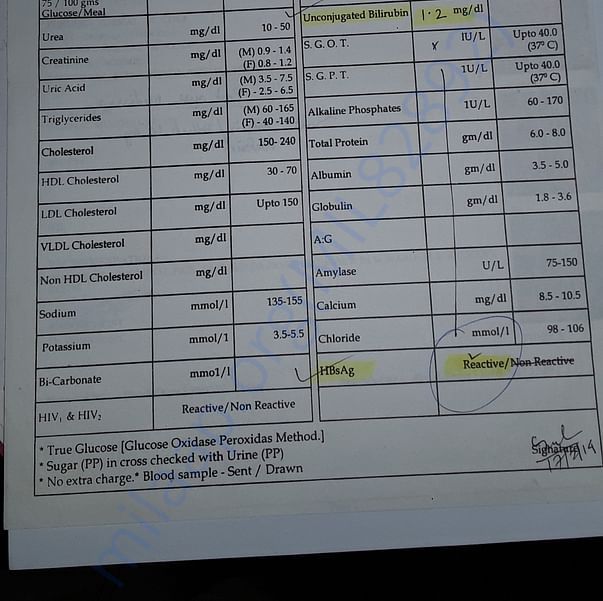 75 / 100 gms
Glucose/Meal
Urea mg/dl 10 - 50
Creatinine mg/dl (M) 0.9 - 1.4
(F) 0.8 - 1.2
Uric Acid mg/dl (M) 3.5 - 7.5
(F) - 2.5 - 6.5
Triglycerides mg/dl (M) 60 -165
(F) - 40 -140
Cholesterol mg/dl 150- 240
HDL Cholesterol mg/dl 30 - 70
LDL Cholesterol mg/dl Upto 150
VLDL Cholesterol mg/dl
Non HDL Cholesterol mg/dl
Sodium mmol/l 135-155
Potassium mmol/l 3.5-5.5
Bi-Carbonate mmo1/l
HIV₁ & HIV₂ Reactive/Non Reactive
Unconjugated Bilirubin 1.2 mg/dl
S.G.O.T. x IU/L Upto 40.0
(37° C)
S.G.P.T. 1U/L Upto 40.0
(37° C)
Alkaline Phosphates 1U/L 60 - 170
Total Protein gm/dl 6.0 - 8.0
Albumin gm/dl 3.5 - 5.0
Globulin gm/dl 1.8 - 3.6
A:G
Amylase U/L 75-150
Calcium mg/dl 8.5 - 10.5
Chloride mmol/l 98 - 106
HBsAg Reactive/Non Reactive
* True Glucose [Glucose Oxidase Peroxidas Method.]
* Sugar (PP) in cross checked with Urine (PP)
* No extra charge.* Blood sample - Sent / Drawn
Signature